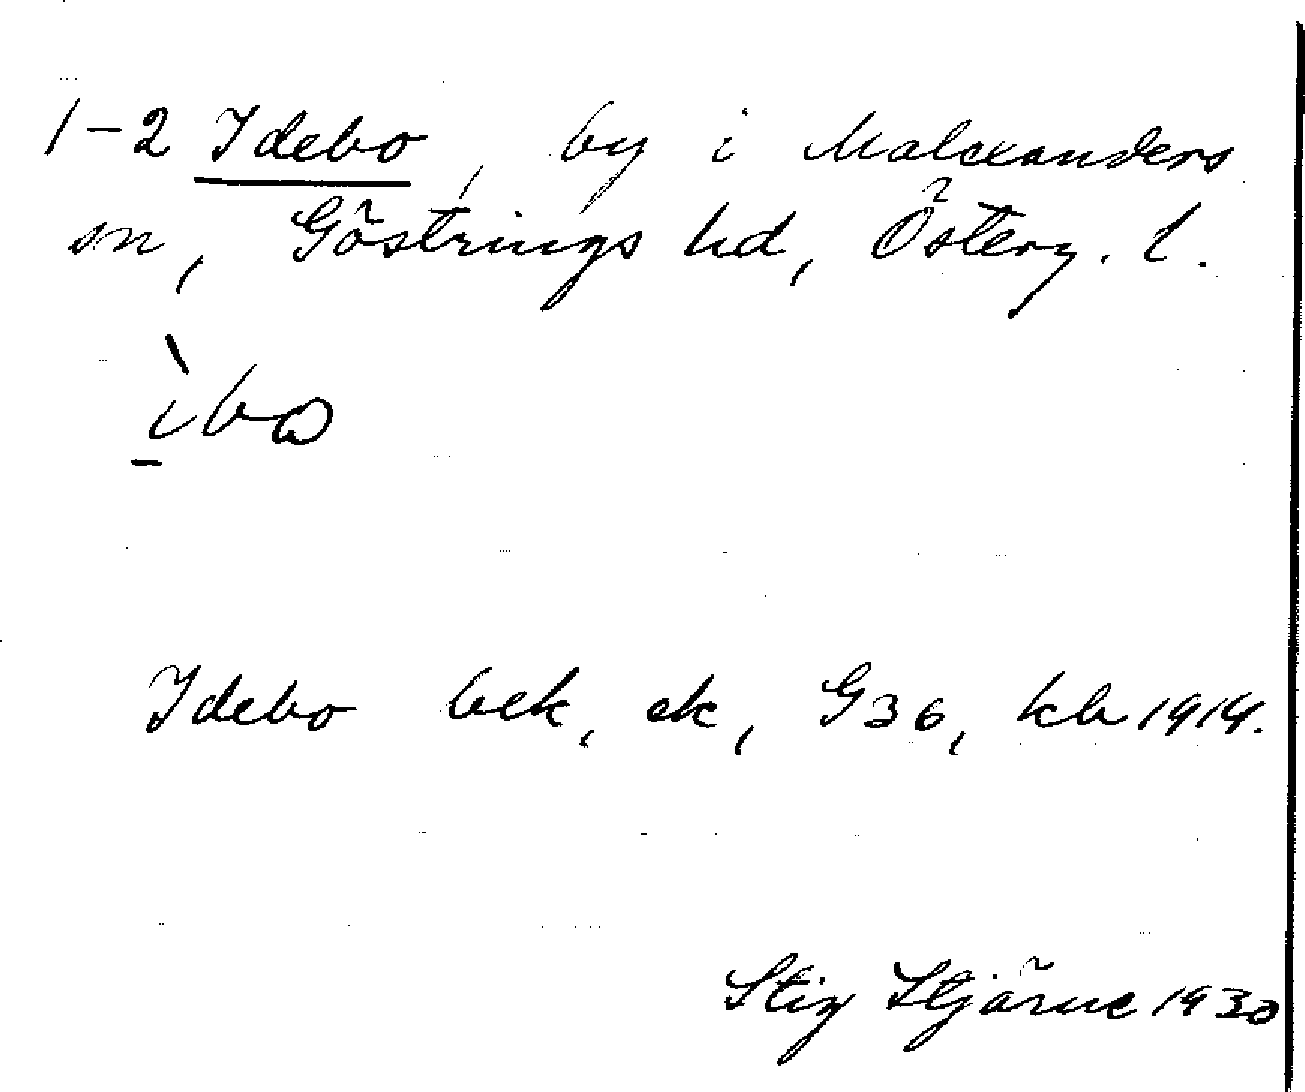 1-2 Idebo, by i Malexanders
sn, Göstrings hd, Österg. l.
ìbω
Idebo bek, ek, G36, kb 1914.
Stig Stjärne 1930